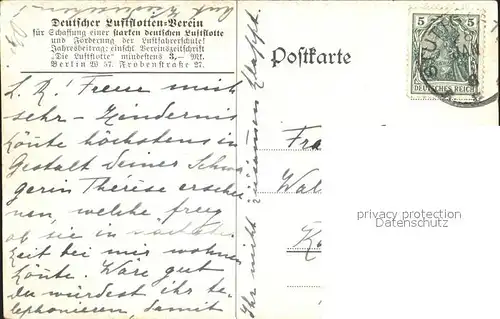 Deutscher Luftflotten-Verein
für Schaffung einer starken deutschen Luftflotte
und Förderung der Luftfahrerschule!
Jahresbeitrag: einschl. Vereinszeitschrift
„Die Luftflotte“ mindestens 3,— Mk.
Berlin W 57. Frobenstraße 27.
L. R.! Freue mich
sehr – Hindernis
könte höchstens in
Gestalt deiner Schwä
gerin Thérèse erschei
nen, welche frug
ob sie in nächster
Zeit bei mir wohnen
könte. Wäre gut
du würdest ihr te-
lephonieren, damit
Ihr nicht zusammen klappt.
Postkarte
5 5
DEUTSCHES REICH
Fra
Wal
privacy protection
Datenschutz